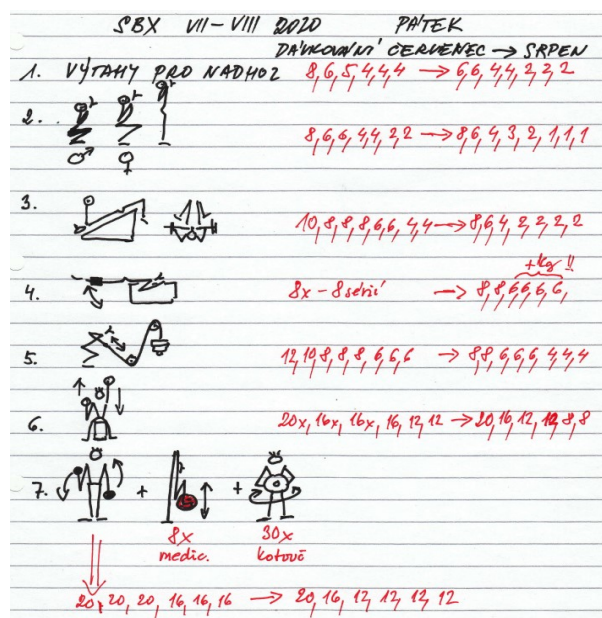 SBX VII-VIII 2020 PÁTEK
DÁVKOVÁNÍ ČERVENEC → SRPEN
1. VÝTAHY PRO NADHOZ 8,6,5,4,4,4 → 6,6,4,4,2,2,2
2. 8,6,6,4,4,2,2 → 8,6,4,3,2,1,1,1
♂ ♀
3. 10,8,8,8,6,6,4,4 → 8,6,4,2,2,2,2
+kg !!
4. 8x - 8 sérií → 8,8,6,6,6,6,
5. 12,10,8,8,8,6,6,6 → 8,8,6,6,6,4,4,4
6. 20x, 16x, 16x, 16, 12, 12 → 20,16,12,12,8,8
7. + +
8x 30x
medic. kotouč
20,20,20,16,16,16 → 20,16,12,12,12,12